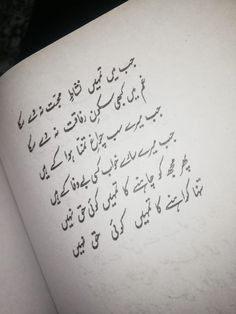 جب میں تمہیں نشاطِ محبت نہ دے سکا
غم میں کبھی سکونِ رفاقت نہ دے سکا
جب میرے سب چراغِ تمنا ہوا کے ہیں
جب میرے سارے خواب کسی بے وفا کے ہیں
پھر مجھ کو چاہنے کا تمہیں کوئی حق نہیں
تنہا کراہنے کا تمہیں کوئی حق نہیں